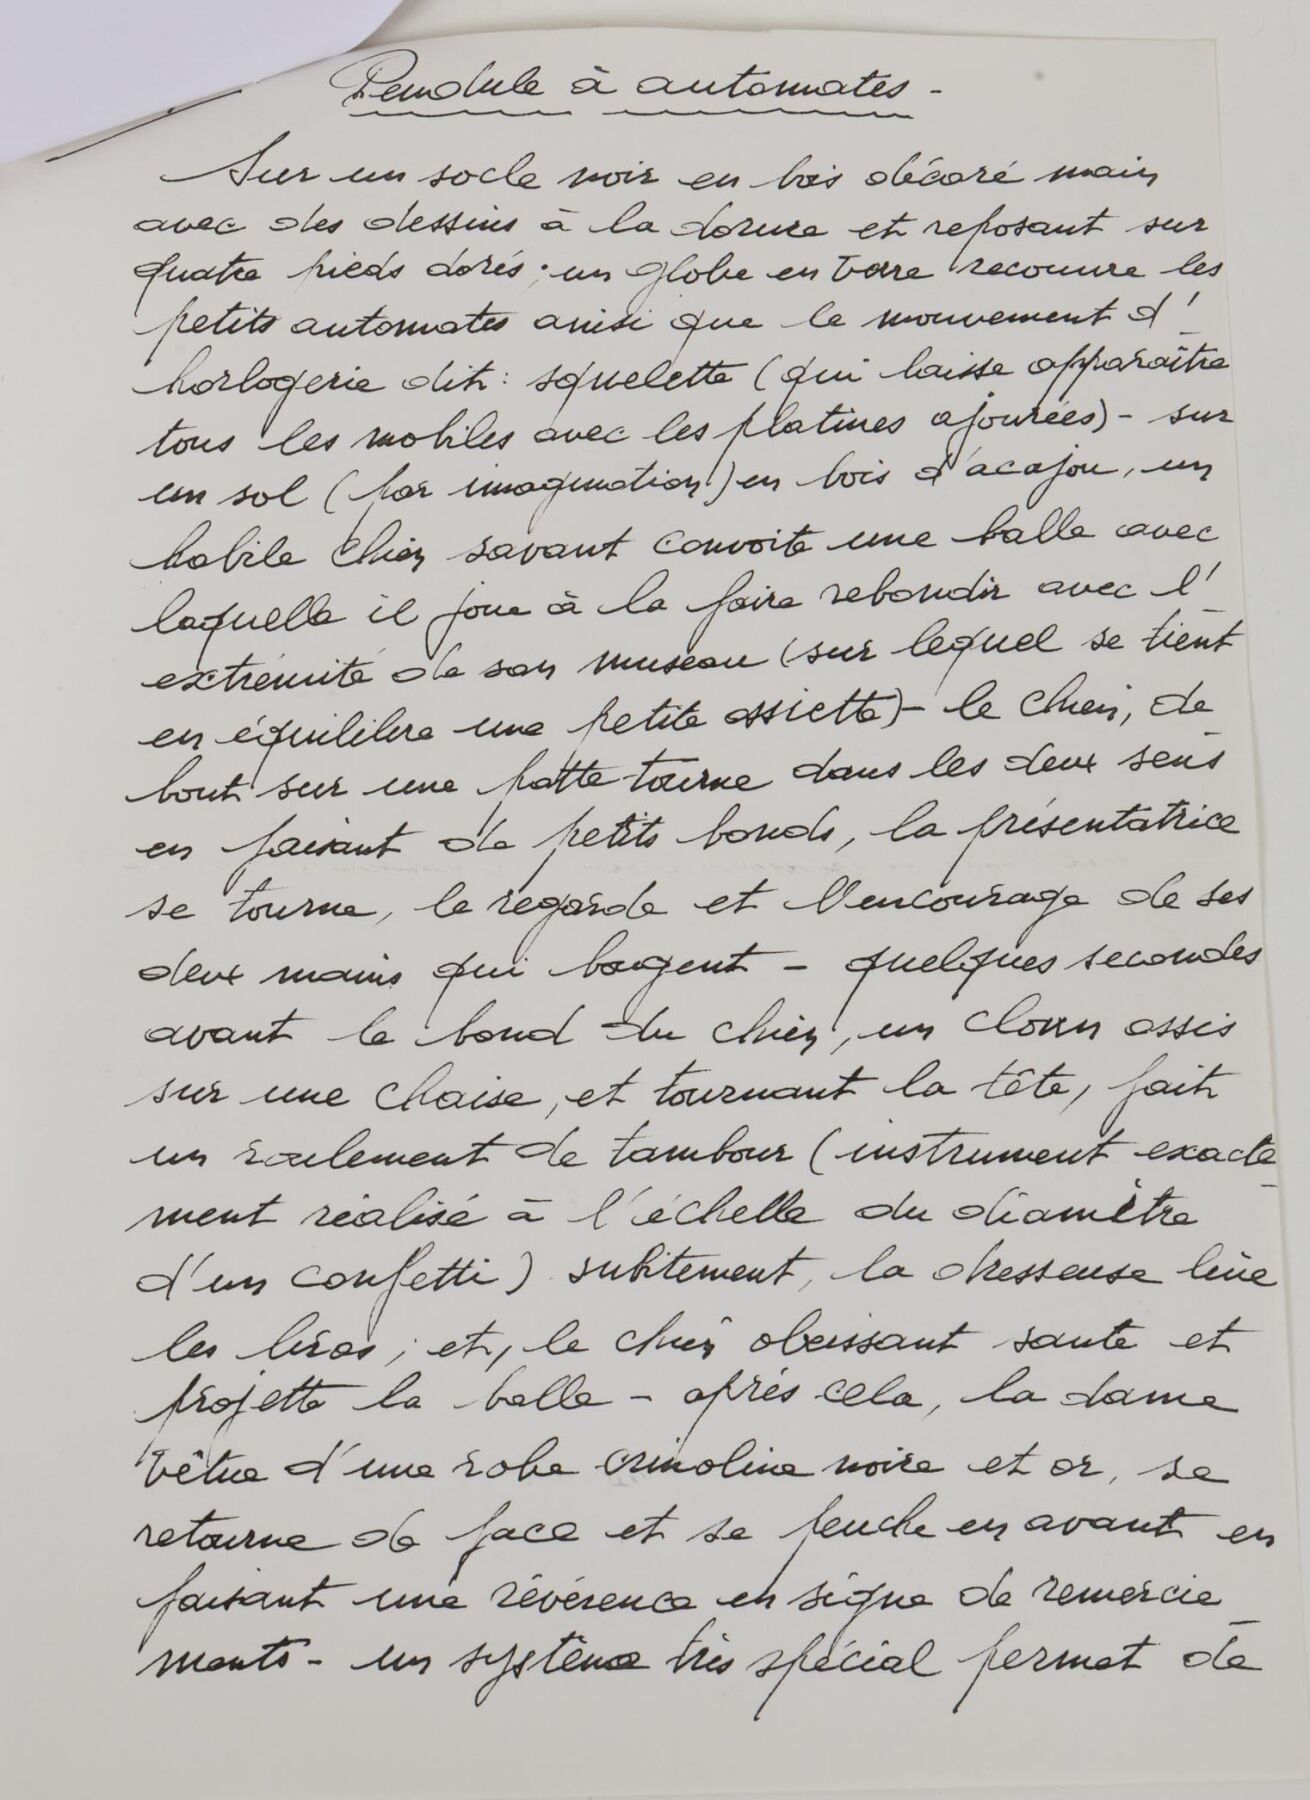 Pendule à automates -
Sur un socle noir en bois décoré main
avec des dessins à la dorure et reposant sur
quatre pieds dorés ; un globe en verre recouvre les
petits automates ainsi que le mouvement d'
horlogerie dit : squelette (qui laisse apparaître
tous les mobiles avec les platines ajourées) - sur
un sol (par imagination) en bois d'acajou, un
habile chien savant convoite une balle avec
laquelle il joue à la faire rebondir avec l'
extrémité de son museau (sur lequel se tient
en équilibre une petite assiette) - le chien, de
bout sur une patte tourne dans les deux sens
en faisant de petits bonds, la présentatrice
se tourne, le regarde et l'encourage de ses
deux mains qui bougent - quelques secondes
avant le bond du chien, un clown assis
sur une chaise, et tournant la tête, fait
un roulement de tambour (instrument exacte
ment réalisé à l'échelle du diamètre
d'un confetti) subitement, la dresseuse lève
les bras ; et, le chien obeissant saute et
projette la balle - après cela, la dame
vêtue d'une robe crinoline noire et or, se
retourne de face et se penche en avant en
faisant une révérence en signe de remercie
ments - un système très spécial permet de